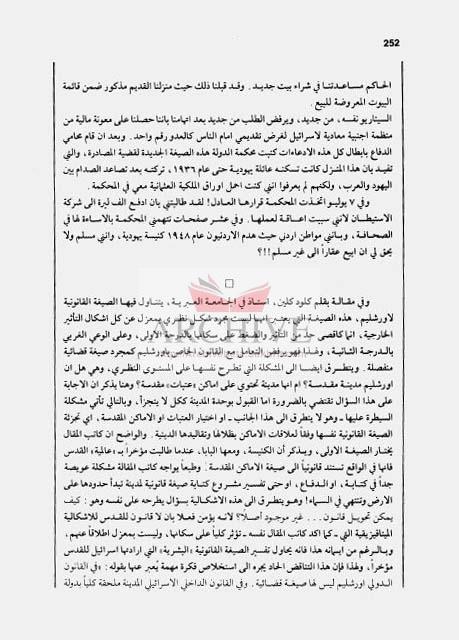 252
الحاكم مساعدتنا في شراء بيت جديد . وقد قبلنا ذلك حيث منزلنا القديم مذكور ضمن قائمة
البيوت المعروضة للبيع .
السيتاريو نفسه ، من جديد ، ويرفض الطلب من جديد بعد اتهامنا باننا حصلنا على معونة مالية من
منظمة اجنبية معادية لاسرائيل لغرض تقديمي امام الناس كالعدو رقم واحد . وبعد ان قام محامي
الدفاع بابطال كل هذه الادعاءات كتبت محكمة الدولة هذه الصيغة الجديدة لقضية المصادرة ، والتي
تفيد بان هذا المنزل كانت تسكنه عائلة يهودية حتى عام ١٩٣٦ ، تركته بعد تصاعد الصدام بين
اليهود والعرب ، ولكنهم لم يعرفوا انني كنت احمل اوراق الملكية العثمانية معي في المحكمة .
وفي ٧ يوليو اتخذت المحكمة قرارها العادل ! لقد طالبتني بان ادفع الف ليرة الى شركة
الاستيطان لانني سببت اعاقة لعملها . وفي عشر صفحات تتهمني المحكمة بالاساءة لها في
الصحافة ، وبانني مواطن اردني حيث هدم الاردنيون عام ١٩٤٨ كنيسة يهودية ، وانني مسلم ولا
يحق لي ان ابيع عقاراً الى غير مسلم !!؟
وفي مقالة بقلم كلود كلين ، استاذ في الجامعة العبرية ، يتناول فيها الصيغة القانونية
لاورشليم ، هذه الصيغة التي يعتبر انها ليست مجرد شكل نظري بمعزل عن كل اشكال التأثير
الخارجية ، انما كاقصى حد من التأثير والضغط على سكانها بالدرجة الاولى ، وعلى الوعي الغربي
بالدرجة الثانية ، ولهذا فهو يرفض التعامل مع القانون الخاص باورشليم كمجرد صيغة قضائية
منفصلة . ويتطرق ايضا الى المشكلة التي تطرح نفسها على المستوى النظري ، وهي هل ان
اورشليم مدينة مقدسة ؟ ام انها مدينة تحتوي على اماكن «عتبات» مقدسة ؟ وهنا يذكر ان الاجابة
على هذا السؤال تقتضي بالضرورة اما القبول بوحدة المدينة ككل لا يتجزأ ، وبالتالي تأتي مشكلة
السيطرة عليها - وهو لا يتطرق الى هذا الجانب - او اختيار العتبات او الاماكن المقدسة ، اي تجزئة
الصيغة القانونية نفسها وفقاً لعلاقات الاماكن بظلالها وتقاليدها الدينية . والواضح ان كاتب المقال
يختار الصيغة الاولى ، ويذكر أن الكنيسة ، ومعها البابا ، عندما طالبت مؤخراً بـ «عالمية» القدس
فانها في الواقع تستند قانونياً الى صيغة الاماكن المقدسة . وطبعاً يواجه كاتب المقالة مشكلة عويصة
جداً في كتابة ، او الدفاع ، او حتى تفسير مشروع كتابة صيغة قانونية لمدينة تبدأ حدودها على
الارض وتنتهي في السماء ! وهو يتطرق الى هذه الاشكالية بسؤال يطرحه على نفسه وهو : كيف
يمكن تحويل قانون . . . غير موجود أصلاً ؟ لانه يؤمن فعلا بان لا قانون للقدس للاشكالية
الميتافيزيقية التي - كما اكد كاتب المقال نفسه - تؤثر كلياً على سكانها ، وليست بمعزل اطلاقاً عنهم ،
وبالرغم من ايمانه هذا فانه يحاول تفسير الصيغة القانونية «البشرية» التي ارادتها اسرائيل للقدس
مؤخراً ، ولهذا فإن هذا التناقض الحاد يجره الى استخلاص فكرة مهمة يُعبر عنها بقوله : «في القانون
الدولي اورشليم ليس لها صيغة قضائية . وفي القانون الداخلي الاسرائيلي المدينة ملحقة كلياً بدولة
ARCHIVE